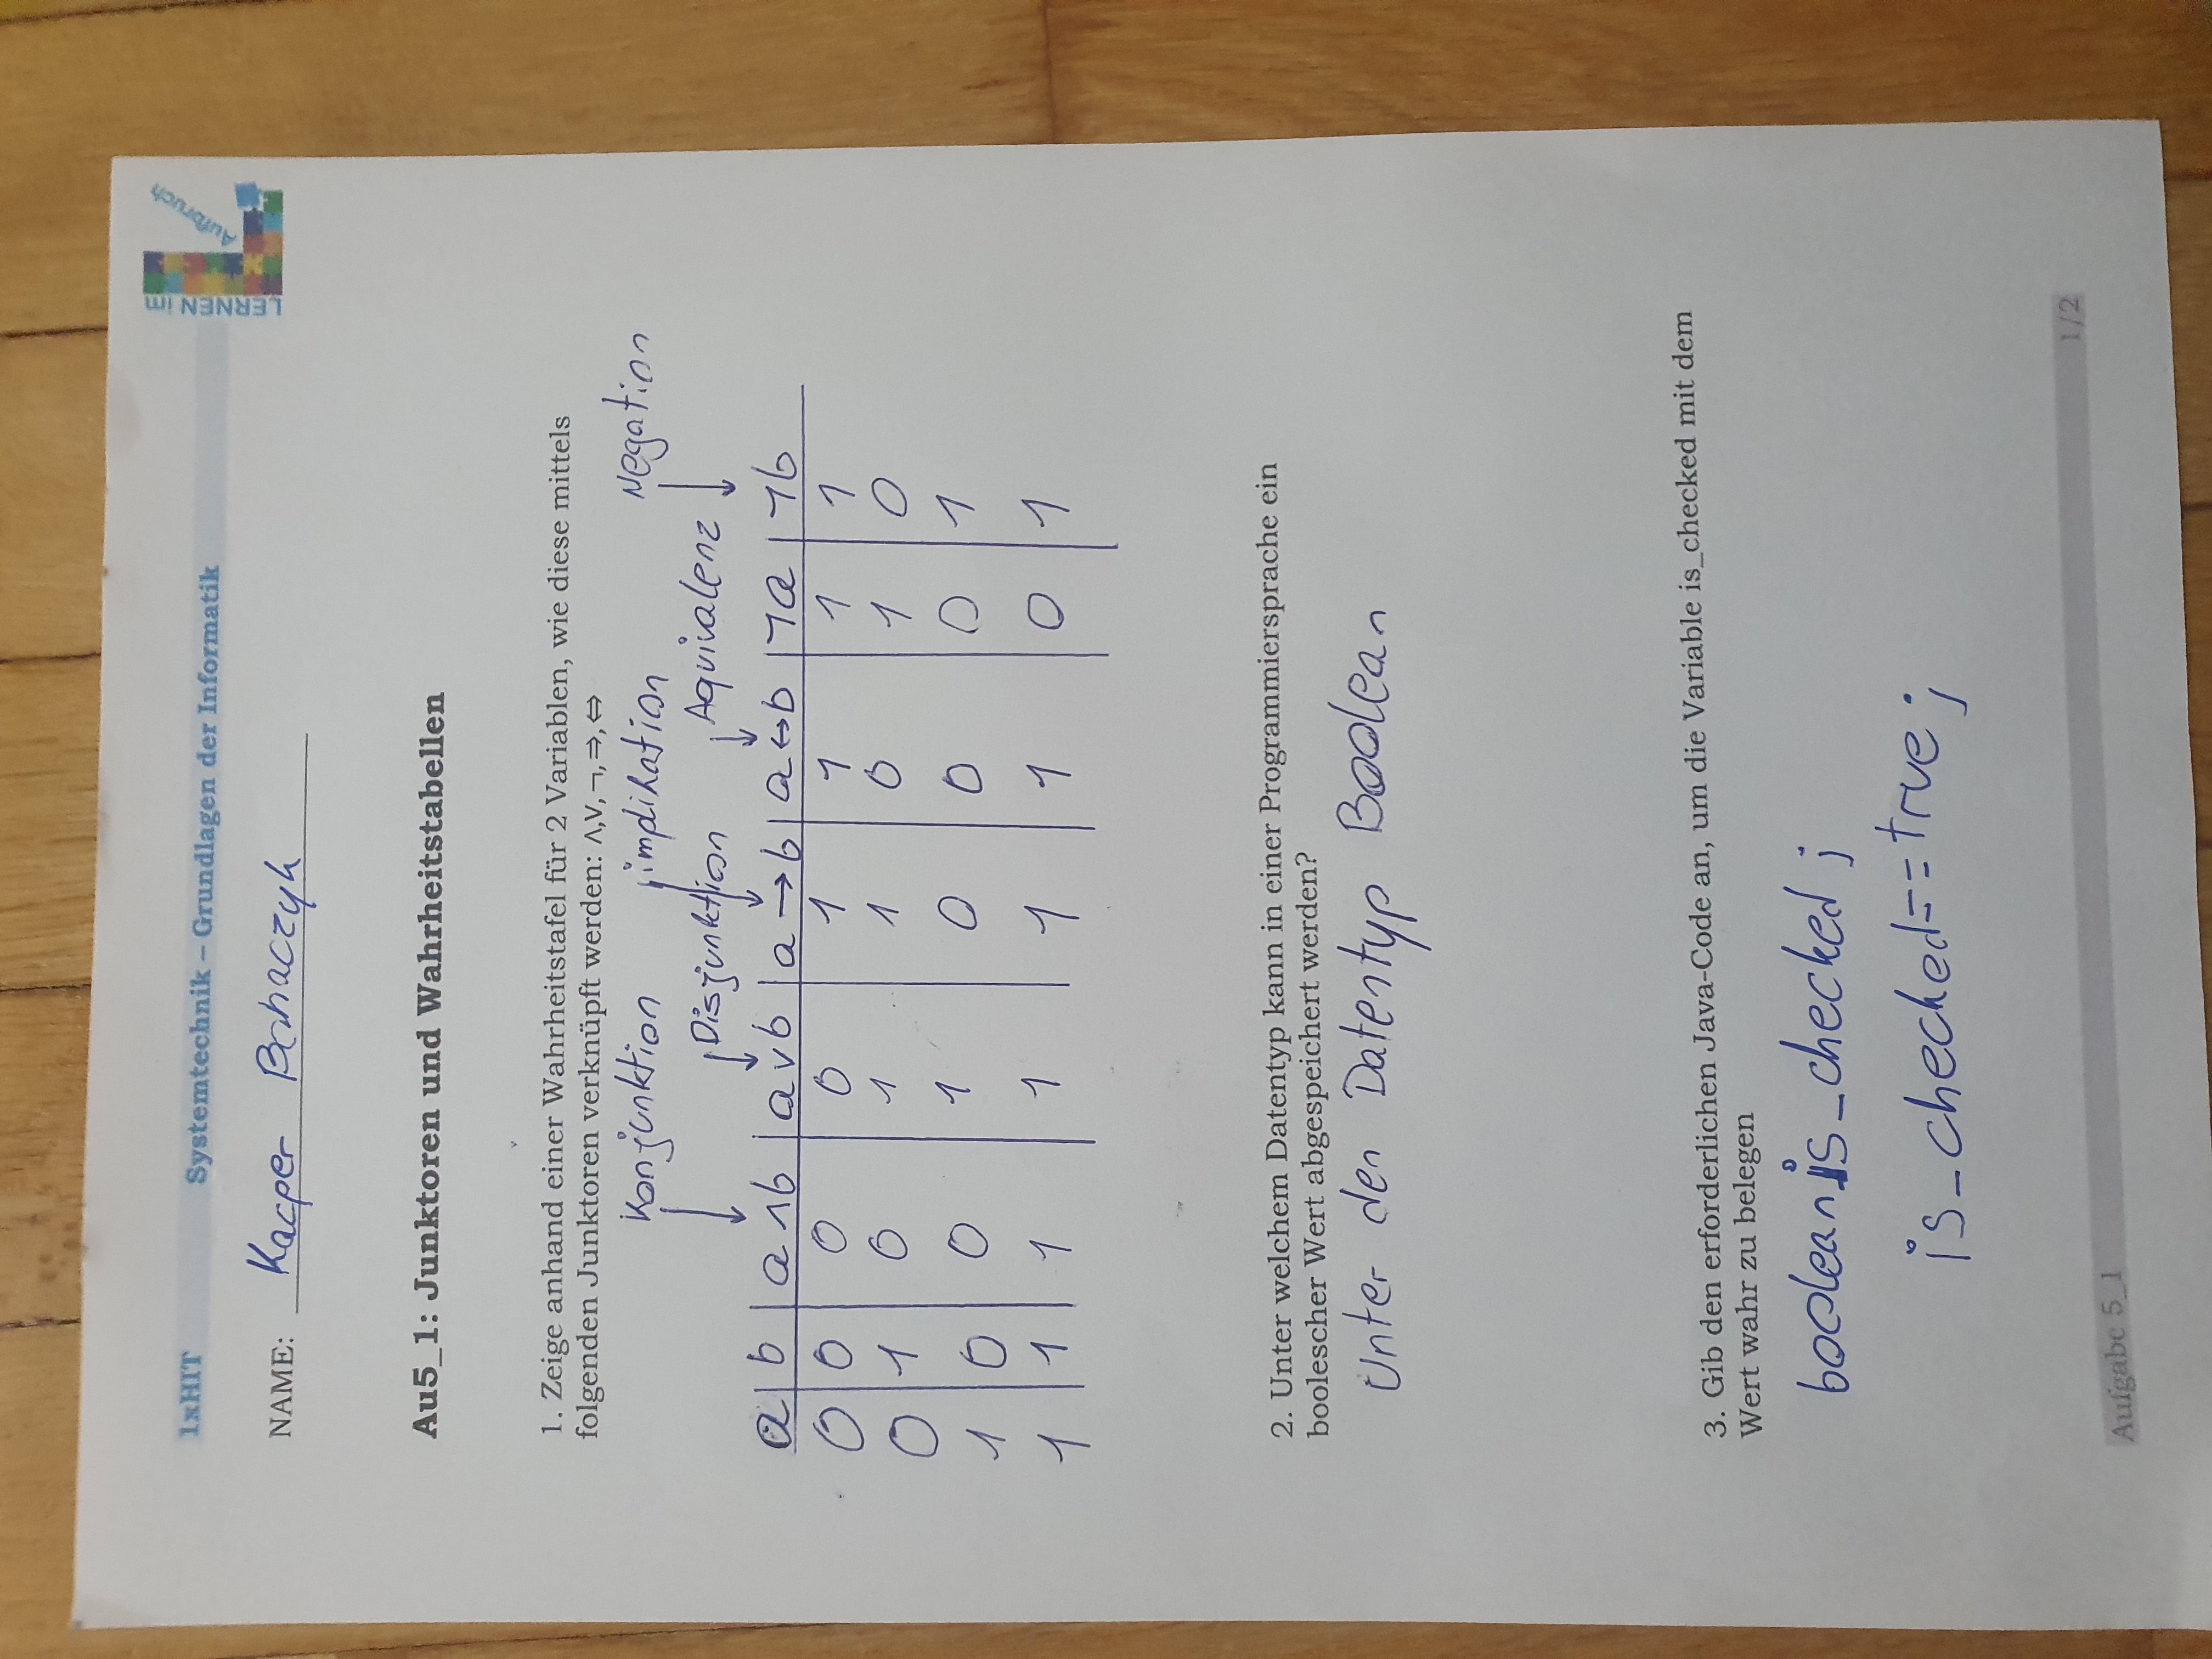 1xHIT Systemtechnik – Grundlagen der Informatik
LERNEN im Aufbruch
NAME: Kacper
Au5_1: Junktoren und Wahrheitstabellen
1. Zeige anhand einer Wahrheitstafel für 2 Variablen, wie diese mittels
folgenden Junktoren verknüpft werden: ∧,∨,¬,⇒,⇔
Konjunktion implikation Negation
Disjunktion Aquivalenz
a b a∧b a∨b a→b a↔b ¬a ¬b
0 0 0 0 1 1 1 1
0 1 0 1 1 0 1 0
1 0 0 1 0 0 0 1
1 1 1 1 1 1 0 1
2. Unter welchem Datentyp kann in einer Programmiersprache ein
boolescher Wert abgespeichert werden?
Unter den Datentyp Boolean
3. Gib den erforderlichen Java-Code an, um die Variable is_checked mit dem
Wert wahr zu belegen
boolean is_checked;
is_checked==true;
1/2
Aufgabe 5_1